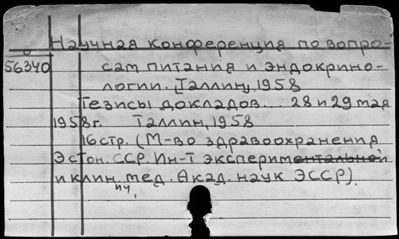 Научная конференция по вопро-
56340 сам питания и эндокрино-
логии. Таллин, 1958
Тезисы докладов... 28 и 29 мая
1958 г. Таллин, 1958
16 стр. (М-во здравоохранения
Эстон. ССР. Ин-т экспериментальной
и клинич. мед. Акад. наук ЭССР).